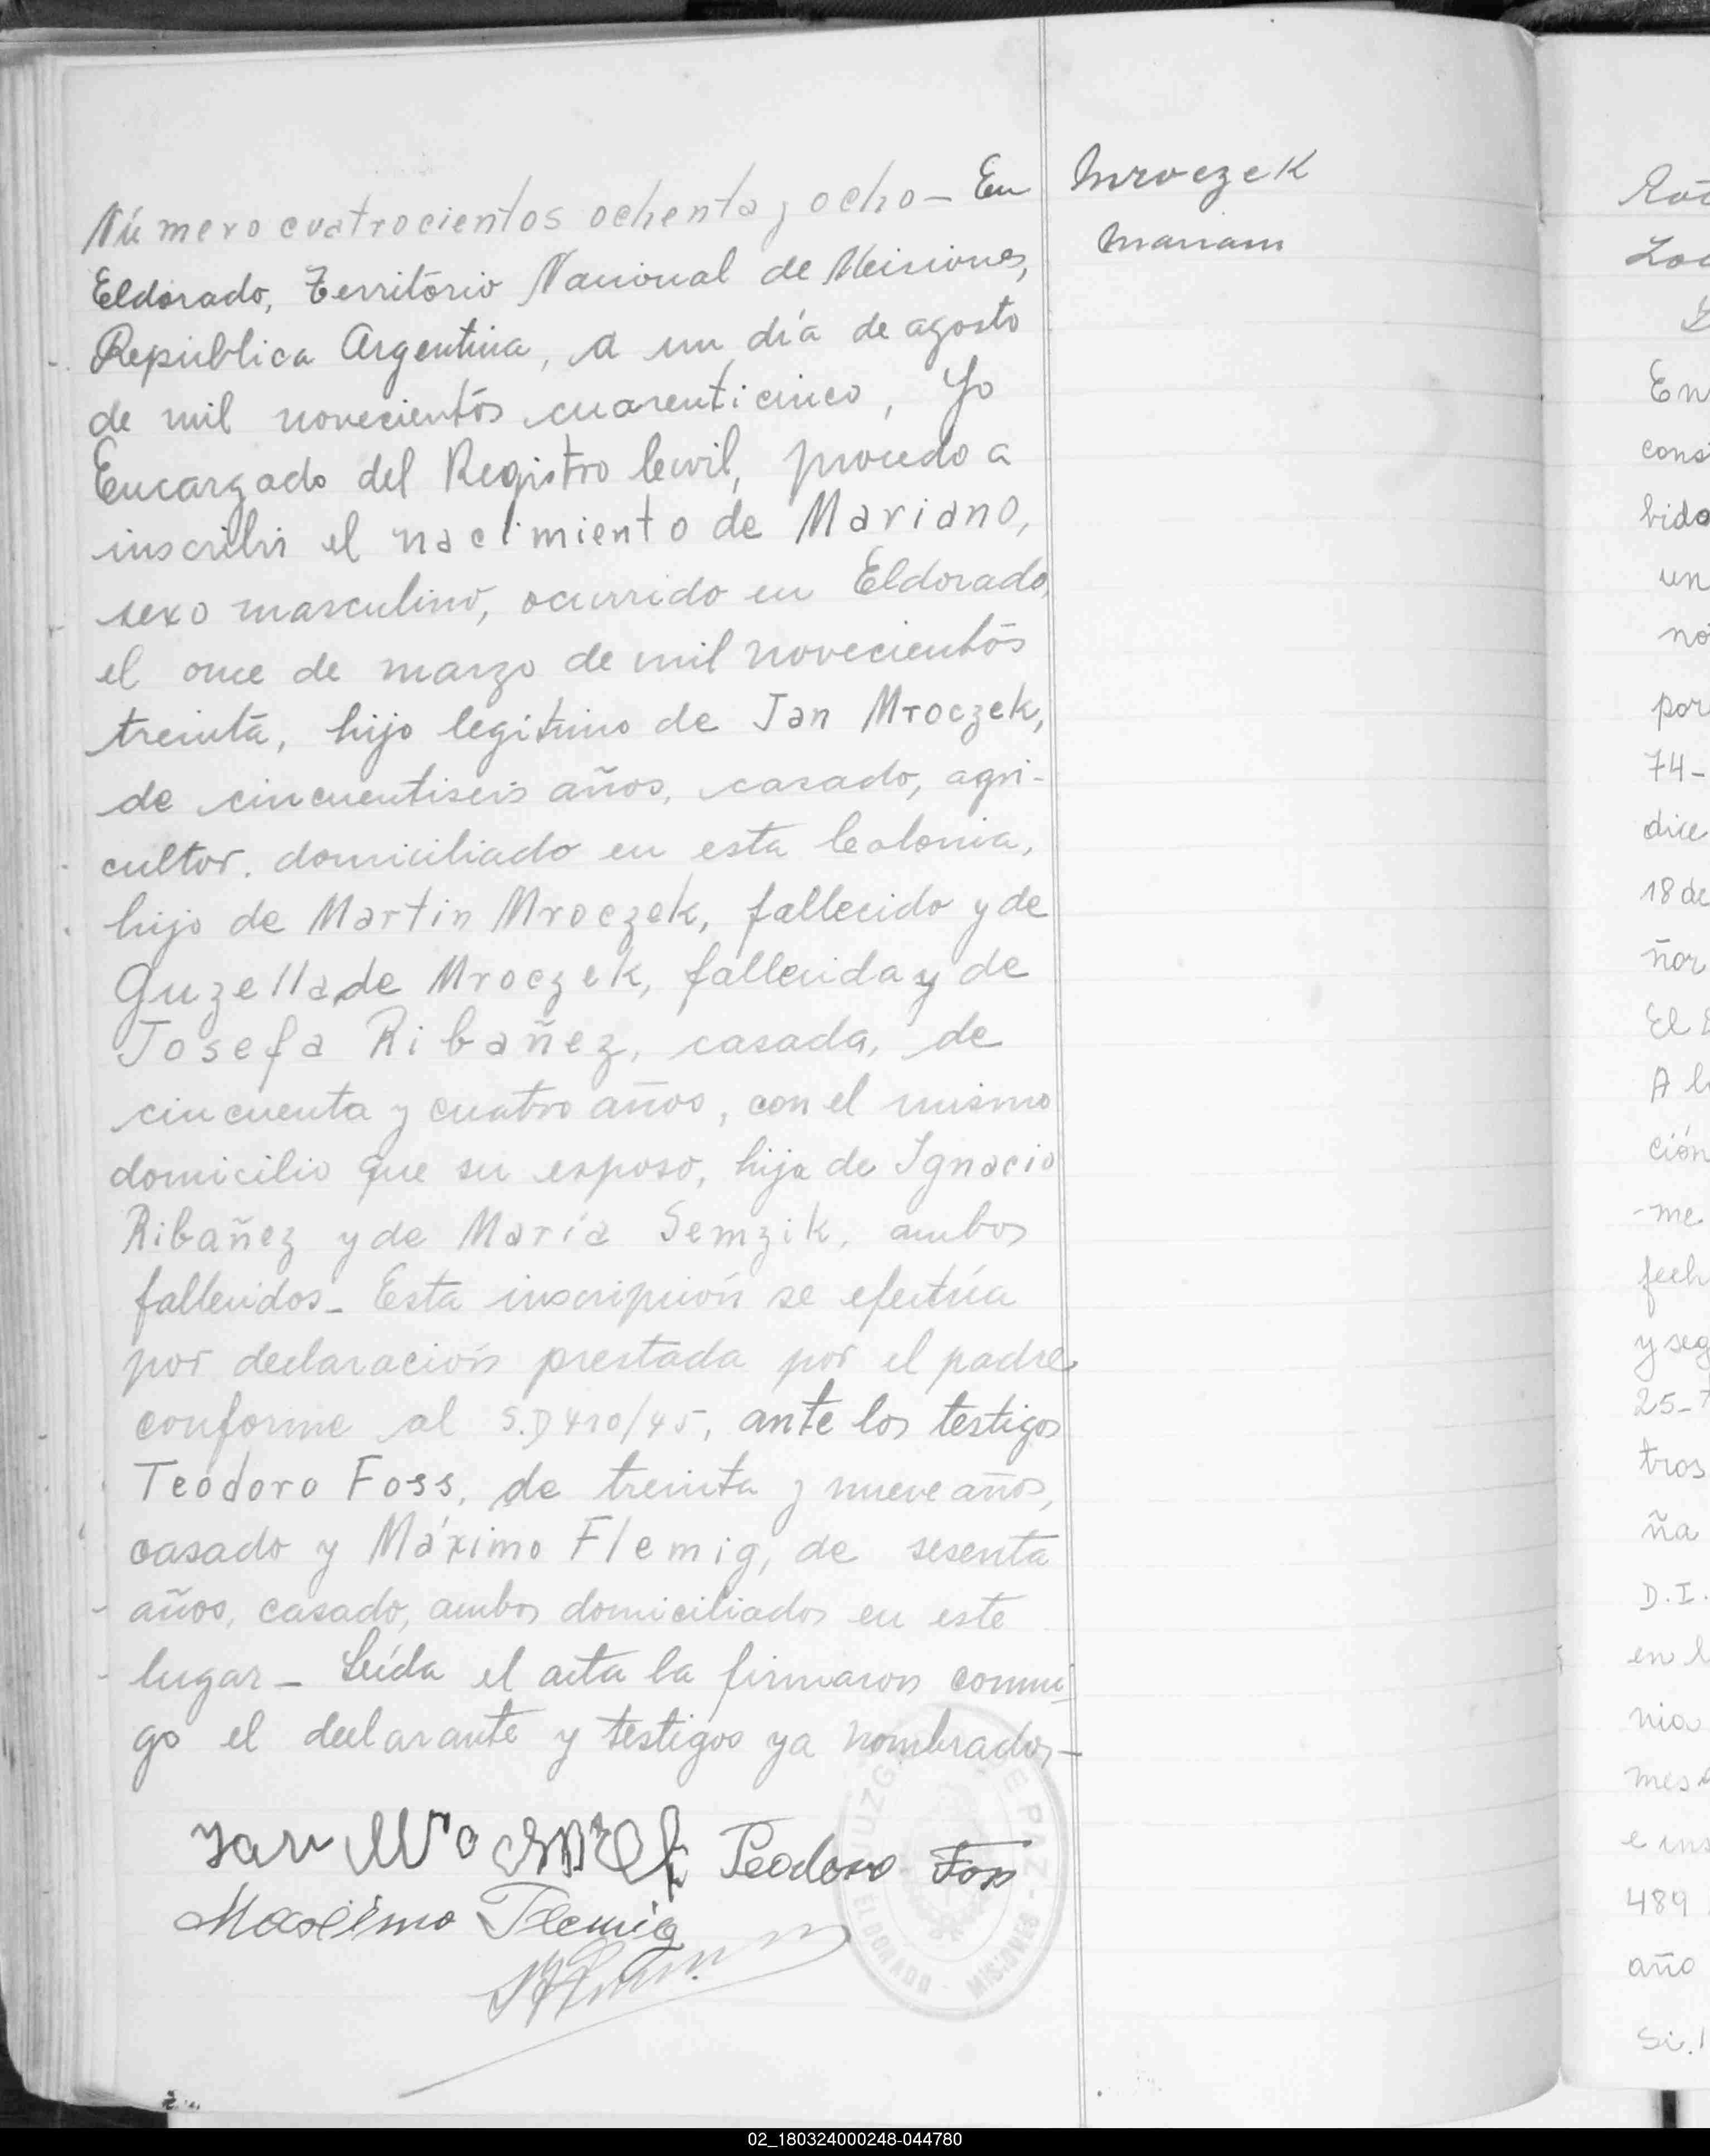 Número cuatrocientos ochenta y ocho - En
Eldorado, Território Nacional de Misiones,
República Argentina, a un día de agosto
de mil novecientos cuarenticinco, Yo
Encargado del Registro Civil, procedo a
inscribir el nacimiento de Mariano,
sexo masculino, ocurrido en Eldorado,
el once de marzo de mil novecientos
treinta, hijo legítimo de Jan Mroczek,
de cincuentiseis años, casado, agri-
cultor. domiciliado en esta Colonia,
hijo de Martin Mroczek, fallecido y de
Guzella de Mroczek, fallecida y de
Josefa Ribañez, casada, de
cincuenta y cuatro años, con el mismo
domicilio que su esposo, hija de Ignacio
Ribañez y de María Semzik, ambos
fallecidos - Esta inscripción se efectúa
por declaración prestada por el padre
conforme al S.D 410/45, ante los testigos
Teodoro Foss, de treinta y nueve años,
casado y Máximo Flemig, de sesenta
años, casado, ambos domiciliados en este
lugar - Leída el acta la firmaron conmi-
go el declarante y testigos ya nombrados -
Jan Mroczek Teodoro Foss
Maximo Flemig
JUZGADO DE PAZ - ELDORADO - MISIONES
Mroczek
Mariano
En
cons
bido
un
no
por
74-
dice
18 de
ñor
El
A l
ción
-me
fech
y seg
25-
tros
ña
D.I.
en l
nia
mes
e ins
489
año
Si.
02_180324000248-044780